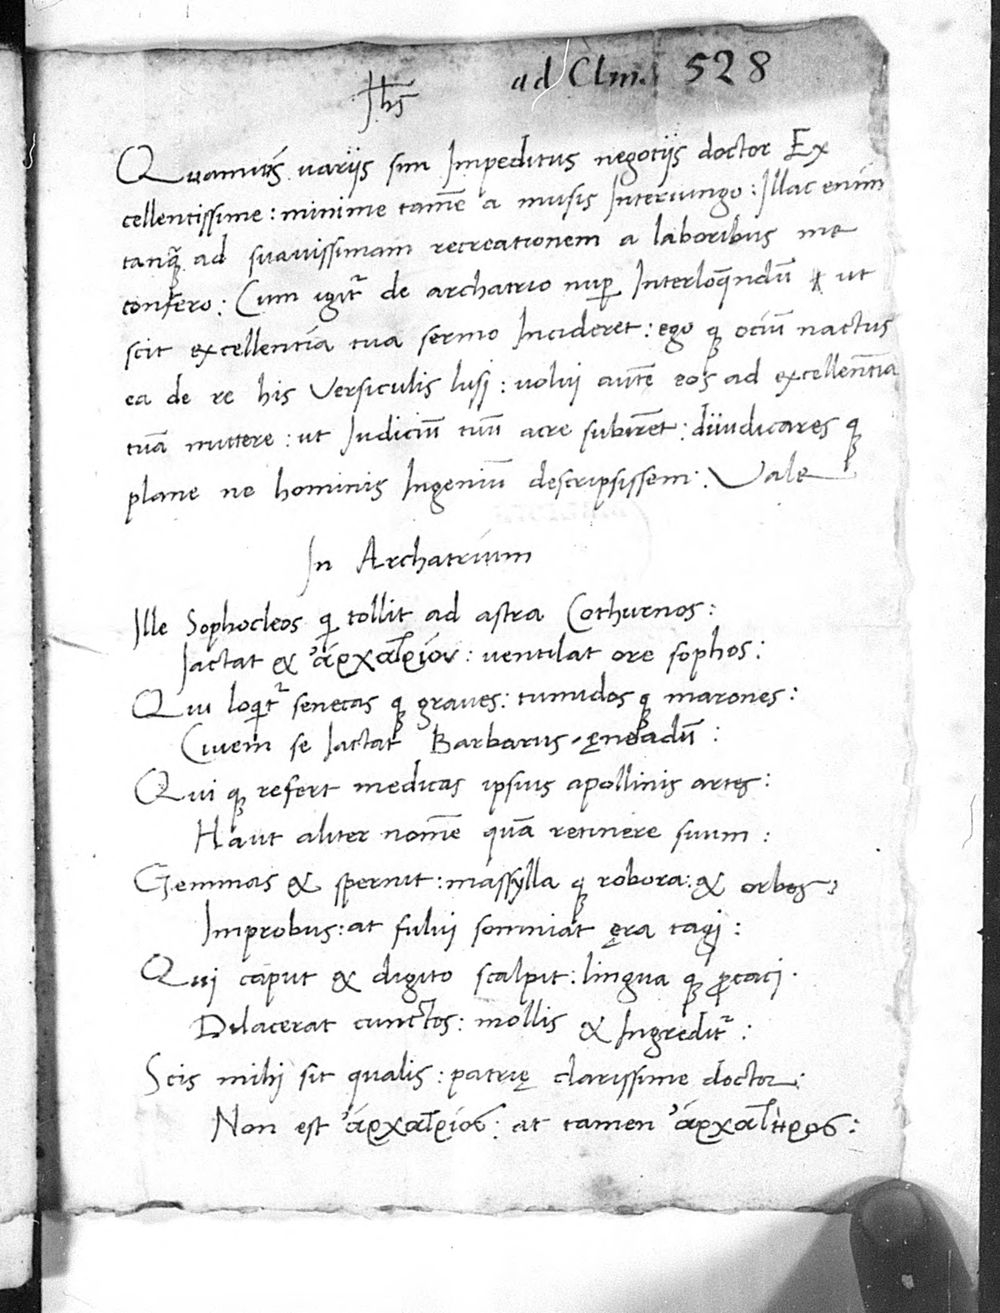 ad Clm. 528
Jhs
Quamuis uariis sim Impeditus negotijs doctor Ex
cellentissime : minime tamē a musis Interiungo : Illac enim
tanq̃ ad suauissimam recreationem a laboribus me
confero : Cum igit̃ de archatrio nuꝑ Interloq̄ndū ut
scit excellentia tua sermo Incideret : ego qꝫ ociū nactus
ea de re his Versiculis lusj : uolui autē eos ad excellentīa
tuā mittere : ut Iudiciū tuū acre subirēt : diiudicares qꝫ
plane ne hominis Ingeniū descripsissem . Vale
In Archatrium
Ille Sophocleos qi tollit ad astra Cothurnos :
Jactat & ἀρχατρίον : uentilat ore sophos :
Qui loqit̃ senecas qꝫ graues : tumidos qꝫ marones :
Ciuem se Jactat Barbarus ęneadū :
Qui qꝫ refert medicas ipsius apollinis artes :
Haut aliter nomē quā retinere suum :
Gemmas & spernit : massylla qꝫ robora : & orbes :
Improbus : at fului somniat ęra tagj :
Quj caput & digito scalpit : lingua qꝫ ꝓcacj .
Dilacerat cunctos : mollis & Ingredit̃ :
Scis mihj sit qualis : patrię clarissime doctor :
Non est ἀρχατρίος : at tamen ἀρχατηρος :